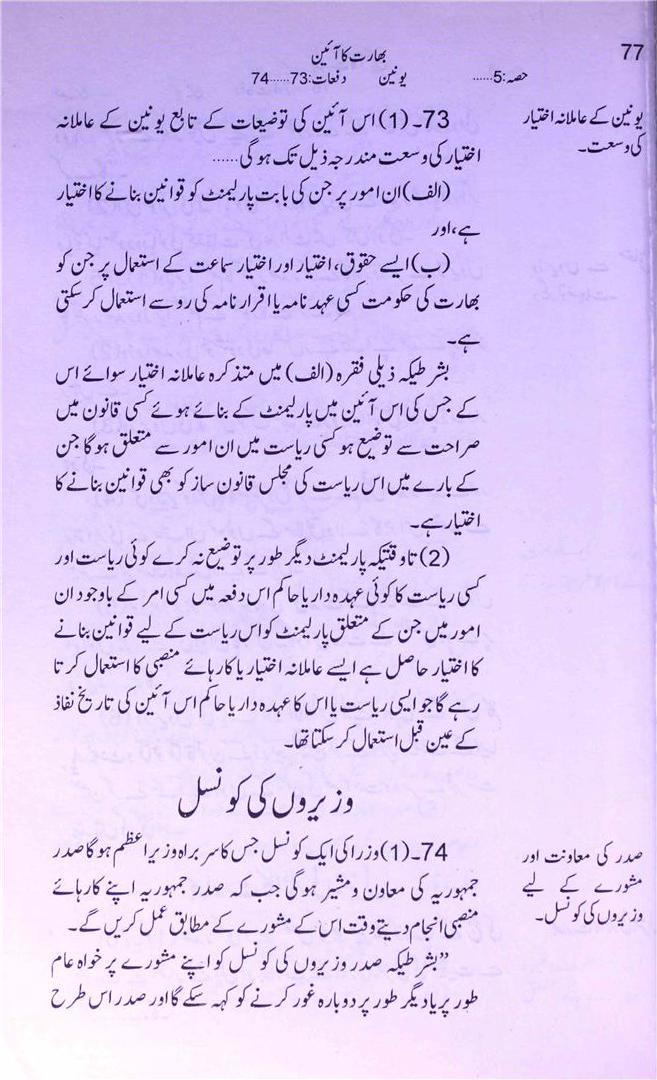 77
بھارت کا آئین
حصہ:5...... یونین دفعات:73......74
یونین کے عاملانہ اختیار
کی وسعت۔
73۔(1) اس آئین کی توضیعات کے تابع یونین کے عاملانہ
اختیار کی وسعت مندرجہ ذیل تک ہوگی......
(الف) ان امور پر جن کی بابت پارلیمنٹ کو قوانین بنانے کا اختیار
ہے، اور
(ب) ایسے حقوق، اختیار اور اختیار سماعت کے استعمال پر جن کو
بھارت کی حکومت کسی عہد نامہ یا اقرار نامہ کی رو سے استعمال کر سکتی
ہے۔
بشرطیکہ ذیلی فقرہ (الف) میں متذکرہ عاملانہ اختیار سوائے اس
کے جس کی اس آئین میں پارلیمنٹ کے بنائے ہوئے کسی قانون میں
صراحت سے توضیع ہو کسی ریاست میں ان امور سے متعلق ہوگا جن
کے بارے میں اس ریاست کی مجلس قانون ساز کو بھی قوانین بنانے کا
اختیار ہے۔
(2) تاوقتیکہ پارلیمنٹ دیگر طور پر توضیع نہ کرے کوئی ریاست اور
کسی ریاست کا کوئی عہدہ دار یا حاکم اس دفعہ میں کسی امر کے باوجود ان
امور میں جن کے متعلق پارلیمنٹ کو اس ریاست کے لیے قوانین بنانے
کا اختیار حاصل ہے ایسے عاملانہ اختیار یا کارہائے منصبی کا استعمال کرتا
رہے گا جو ایسی ریاست یا اس کا عہدہ دار یا حاکم اس آئین کی تاریخ نفاذ
کے عین قبل استعمال کر سکتا تھا۔
وزیروں کی کونسل
صدر کی معاونت اور
مشورے کے لیے
وزیروں کی کونسل۔
74۔(1) وزرا کی ایک کونسل جس کا سربراہ وزیر اعظم ہوگا صدر
جمہوریہ کی معاون و مشیر ہوگی جب کہ صدر جمہوریہ اپنے کارہائے
منصبی انجام دیتے وقت اس کے مشورے کے مطابق عمل کریں گے۔
”بشرطیکہ صدر وزیروں کی کونسل کو اپنے مشورے پر خواہ عام
طور پر یا دیگر طور پر دوبارہ غور کرنے کو کہہ سکے گا اور صدر اس طرح